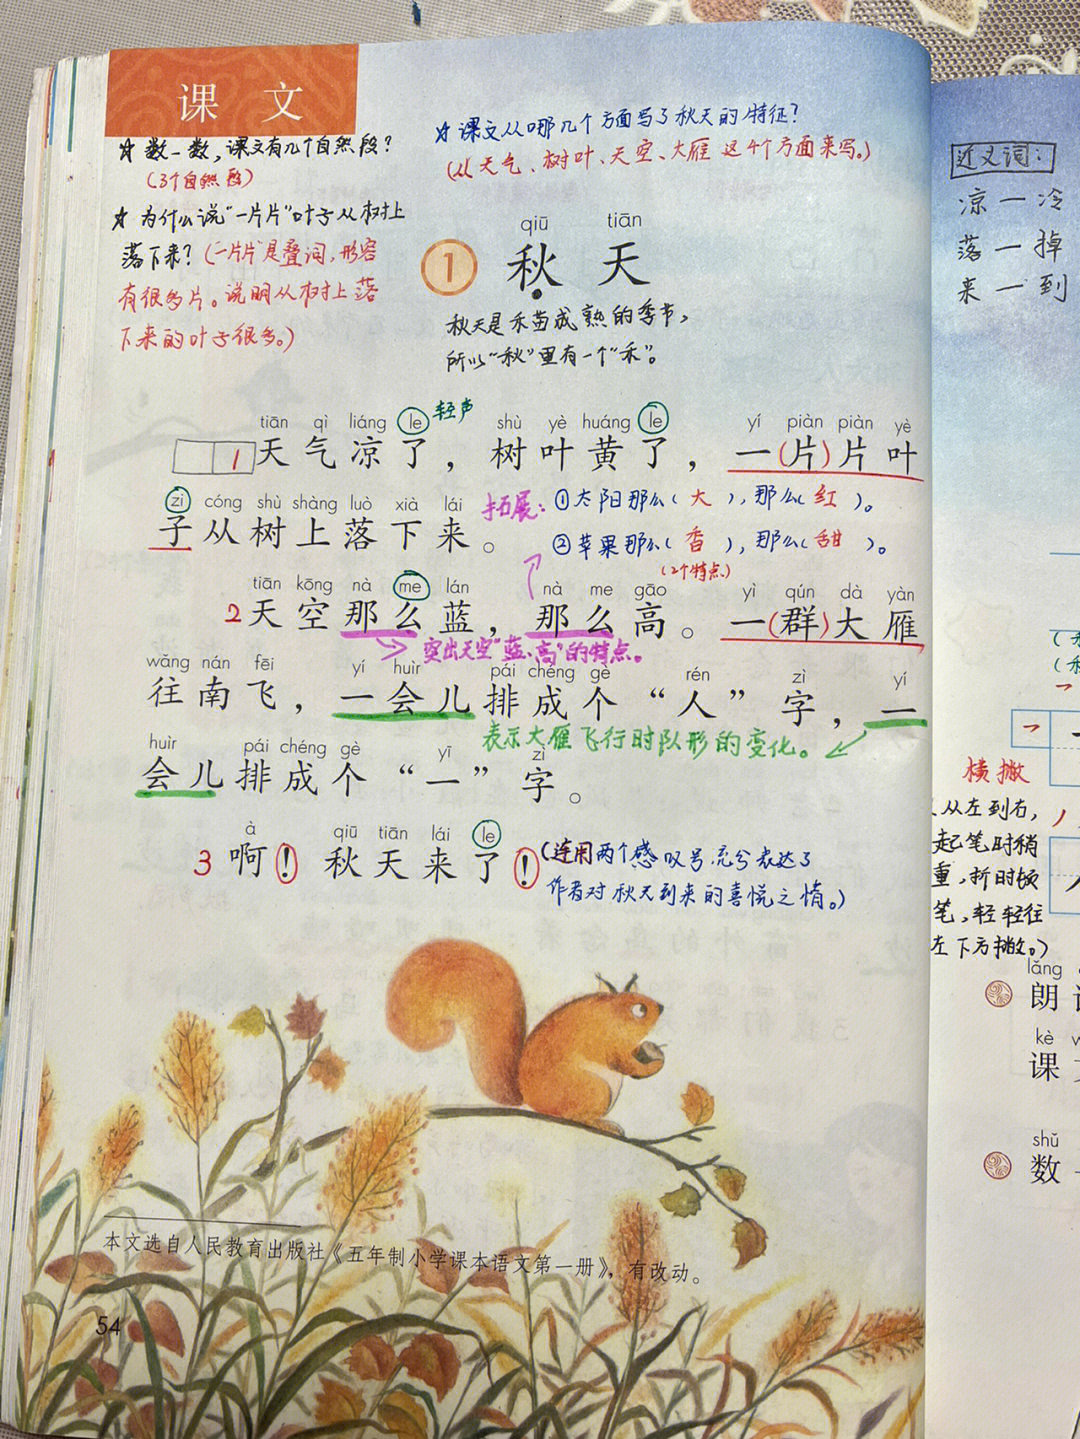 课 文
☆ 数一数,课文有几个自然段?
(3个自然段)
☆ 课文从哪几个方面写了秋天的特征?
(从天气、树叶、天空、大雁这4个方面来写。)
☆ 为什么说“一片片”叶子从树上
落下来?(“一片片”是叠词,形容
有很多片。说明从树上落
下来的叶子很多。)
qiū tiān
1 秋 天
秋天是禾苗成熟的季节,
所以“秋”里有一个“禾”。
tiān qì liáng le 轻声 shù yè huáng le yí piàn piàn yè
1 天气凉了,树叶黄了,一(片)片叶
zi cóng shù shàng luò xià lái
子从树上落下来。
拓展:①太阳那么(大),那么(红)。
②苹果那么(香),那么(甜)。
(2个特点)
tiān kōng nà me lán nà me gāo yì qún dà yàn
2 天空那么蓝,那么高。一(群)大雁
突出天空“蓝、高”的特点。
wǎng nán fēi yí huìr pái chéng gè rén zì yí
往南飞,一会儿排成个“人”字,一
表示大雁飞行时队形的变化。
huìr pái chéng gè yī zì
会儿排成个“一”字。
à qiū tiān lái le
3 啊!秋天来了!
(连用两个感叹号充分表达了
作者对秋天到来的喜悦之情。)
本文选自人民教育出版社《五年制小学课本语文第一册》,有改动。
54
近义词:
凉—冷
落—掉
来—到
横撇
从左到右,
起笔时稍
重,折时顿
笔,轻轻往
左下方撇。)
lǎng
朗
kè
课
shǔ
数